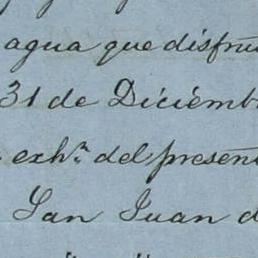 agua que disfru
31 de Diciémb
exhn. del present
San Juan d